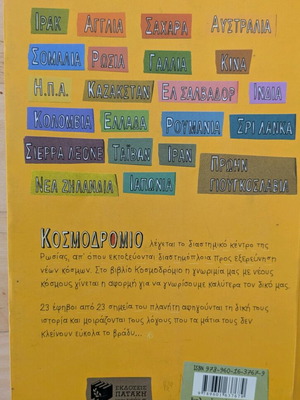 ΙΡΑΚ ΑΓΓΛΙΑ ΣΑΧΑΡΑ ΑΥΣΤΡΑΛΙΑ
ΣΟΜΑΛΙΑ ΡΩΣΙΑ ΓΑΛΛΙΑ ΚΙΝΑ
Η.Π.Α. ΚΑΖΑΚΣΤΑΝ ΕΛ ΣΑΛΒΑΔΟΡ ΙΝΔΙΑ
ΚΟΛΟΜΒΙΑ ΕΛΛΑΔΑ ΡΟΥΜΑΝΙΑ ΣΡΙ ΛΑΝΚΑ
ΣΙΕΡΡΑ ΛΕΟΝΕ ΤΑΪΒΑΝ ΙΡΑΝ ΠΡΩΗΝ
ΓΙΟΥΓΚΟΣΛΑΒΙΑ
ΝΕΑ ΖΗΛΑΝΔΙΑ ΙΑΠΩΝΙΑ
ΚΟΣΜΟΔΡΟΜΙΟ λέγεται το διαστημικό κέντρο της
Ρωσίας, απ' όπου εκτοξεύονται διαστημόπλοια προς εξερεύνηση
νέων κόσμων. Στο βιβλίο Κοσμοδρόμιο η γνωριμία μας με νέους
κόσμους γίνεται η αφορμή για να γνωρίσουμε καλύτερα τον δικό μας.
23 έφηβοι από 23 σημεία του πλανήτη αφηγούνται τη δική τους
ιστορία και μοιράζονται τους λόγους που τα μάτια τους δεν
κλείνουν εύκολα το βράδυ...
ΕΚΔΟΣΕΙΣ
ΠΑΤΑΚΗ
ISBN 978-960-16-3768-3